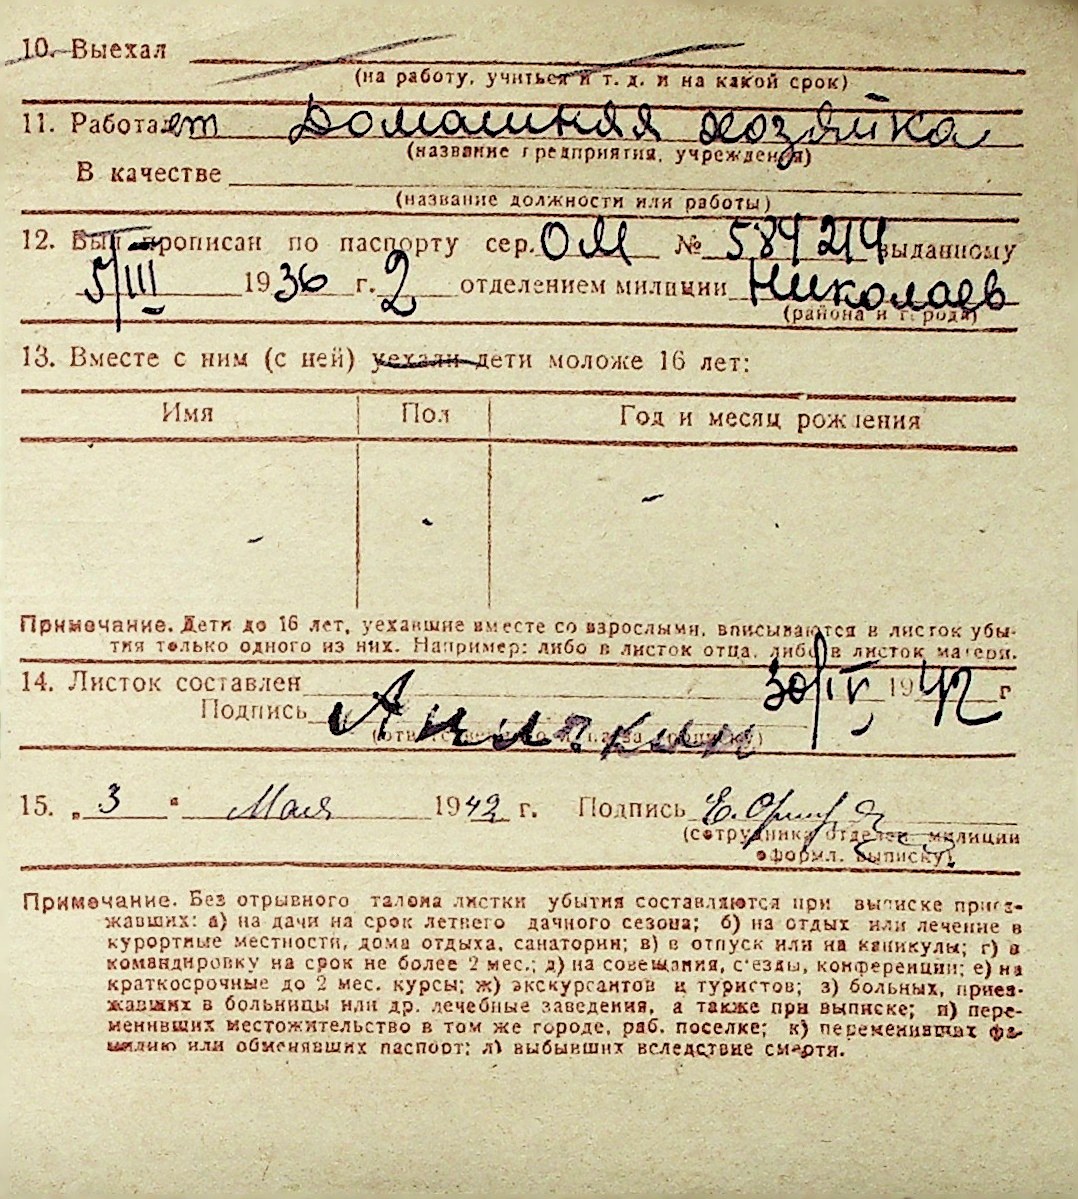 10. Выехал
(на работу, учиться и т. д. и на какой срок)
11. Работает Домашняя хозяйка
(название предприятия, учреждения)
В качестве
(название должности или работы)
12. Был прописан по паспорту сер. ОМ № 584214 выданному
5/III 1936 г. 2 отделением милиции Николаев
(района и города)
13. Вместе с ним (с ней) уехали дети моложе 16 лет:
Имя Пол Год и месяц рождения
Примечание. Дети до 16 лет, уехавшие вместе со взрослыми, вписываются в листок убы-
тия только одного из них. Например: либо в листок отца, либо в листок матери.
14. Листок составлен 30/IV 1942 г
Подпись
15. „3“ Мая 1942 г. Подпись
(сотрудника отделен. милиции
оформл. выписку)
Примечание. Без отрывного талона листки убытия составляются при выписке приез-
жавших: а) на дачи на срок летнего дачного сезона; б) на отдых или лечение в
курортные местности, дома отдыха, санатории; в) в отпуск или на каникулы; г) в
командировку на срок не более 2 мес.; д) на совещания, съезды, конференции; е) на
краткосрочные до 2 мес. курсы; ж) экскурсантов и туристов; з) больных, приез-
жавших в больницы или др. лечебные заведения, а также при выписке; и) пере-
менивших местожительство в том же городе, раб. поселке; к) переменивших фа-
милию или обменявших паспорт; л) выбывших вследствие смерти.